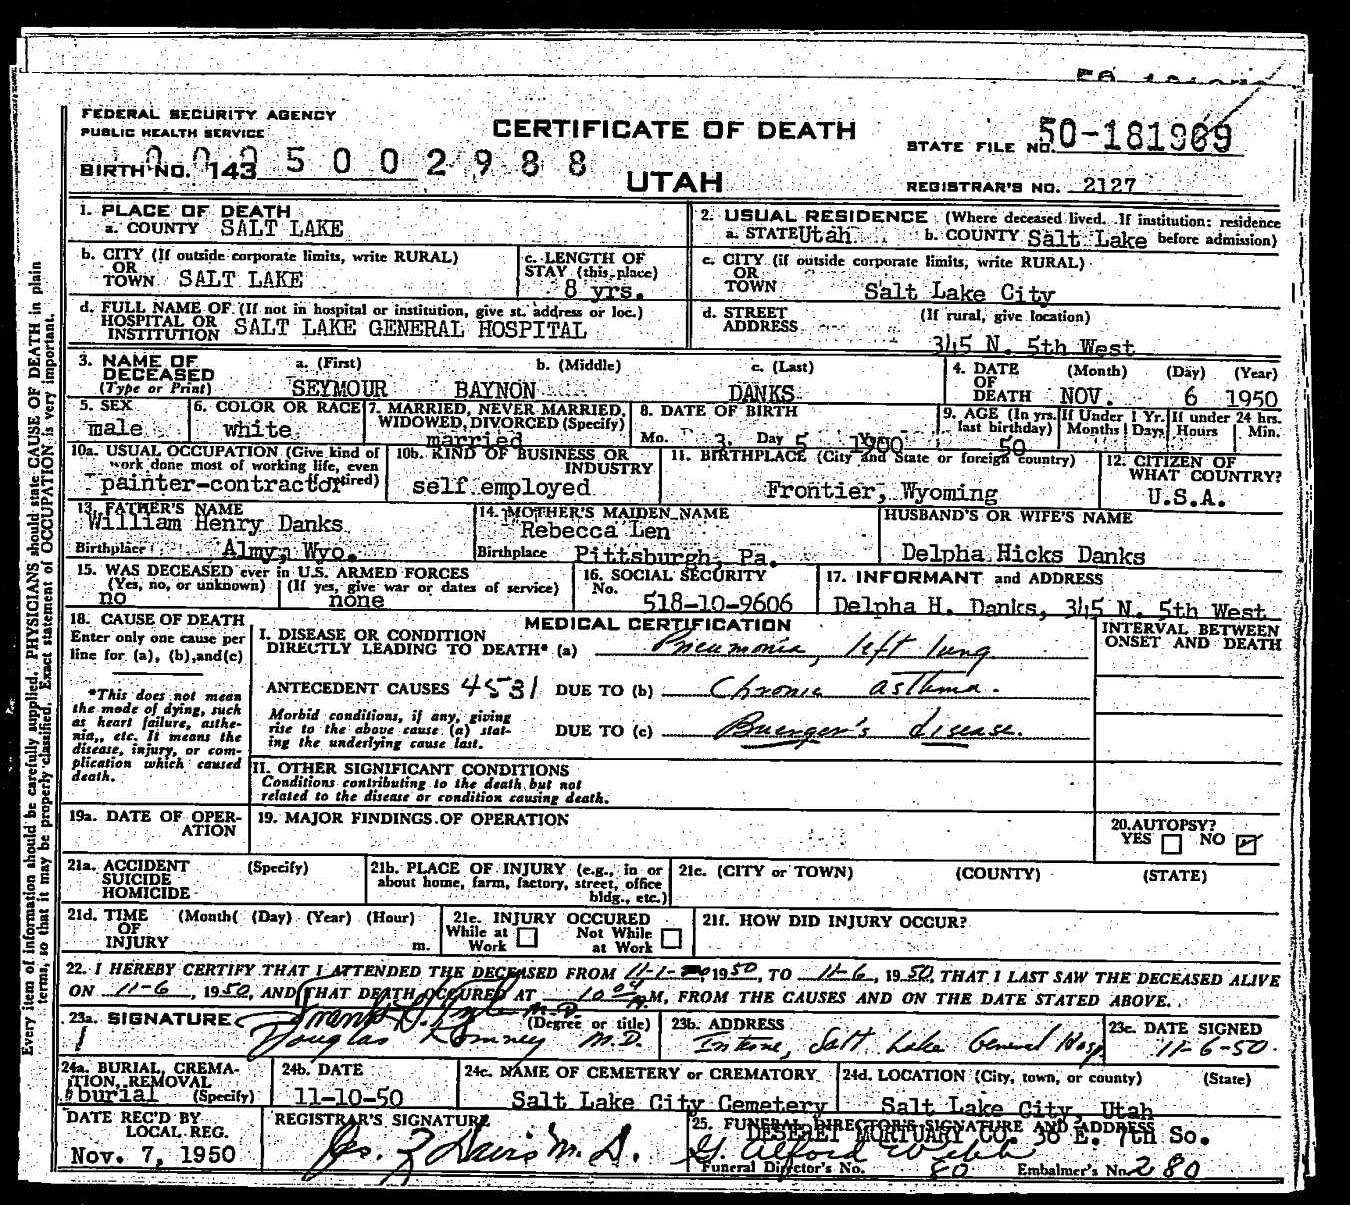 FEDERAL SECURITY AGENCY
PUBLIC HEALTH SERVICE
CERTIFICATE OF DEATH
STATE FILE NO. 50-181969
BIRTH NO. 143 5 0 0 2 9 8 8
UTAH
REGISTRAR'S NO. 2127
1. PLACE OF DEATH
a. COUNTY SALT LAKE
2. USUAL RESIDENCE (Where deceased lived. If institution: residence
a. STATE Utah b. COUNTY Salt Lake before admission)
b. CITY (If outside corporate limits, write RURAL)
OR
TOWN SALT LAKE
c. LENGTH OF
STAY (this place)
8 yrs.
c. CITY (if outside corporate limits, write RURAL)
OR
TOWN Salt Lake City
d. FULL NAME OF (If not in hospital or institution, give st. address or loc.)
HOSPITAL OR
INSTITUTION SALT LAKE GENERAL HOSPITAL
d. STREET (If rural, give location)
ADDRESS
345 N. 5th West
3. NAME OF DECEASED
(Type or Print)
a. (First) b. (Middle) c. (Last)
SEYMOUR BAYNON DANKS
4. DATE OF DEATH (Month) (Day) (Year)
NOV. 6 1950
5. SEX
male
6. COLOR OR RACE
white
7. MARRIED, NEVER MARRIED,
WIDOWED, DIVORCED (Specify)
married
8. DATE OF BIRTH
Mo. 3 Day 5 Yr. 1900
9. AGE (In yrs. last birthday)
50
If Under 1 Yr. Months Days
If under 24 hrs. Hours Min.
10a. USUAL OCCUPATION (Give kind of
work done most of working life, even
if retired)
painter-contractor
10b. KIND OF BUSINESS OR
INDUSTRY
self employed
11. BIRTHPLACE (City and State or foreign country)
Frontier, Wyoming
12. CITIZEN OF
WHAT COUNTRY?
U.S.A.
13. FATHER'S NAME
William Henry Danks
Birthplace Almy, Wyo.
14. MOTHER'S MAIDEN NAME
Rebecca Len
Birthplace Pittsburgh, Pa.
HUSBAND'S OR WIFE'S NAME
Delpha Hicks Danks
15. WAS DECEASED ever in U.S. ARMED FORCES
(Yes, no, or unknown) (If yes, give war or dates of service)
no none
16. SOCIAL SECURITY
No. 518-10-9606
17. INFORMANT and ADDRESS
Delpha H. Danks, 345 N. 5th West
18. CAUSE OF DEATH
Enter only one cause per
line for (a), (b), and (c)
*This does not mean
the mode of dying, such
as heart failure, asthe-
nia, etc. It means the
disease, injury, or com-
plication which caused
death.
MEDICAL CERTIFICATION
INTERVAL BETWEEN
ONSET AND DEATH
I. DISEASE OR CONDITION
DIRECTLY LEADING TO DEATH* (a) Pneumonia, left lung
ANTECEDENT CAUSES 4531 DUE TO (b) Chronic asthma.
Morbid conditions, if any, giving
rise to the above cause (a) stat-
ing the underlying cause last.
DUE TO (c) Buerger's disease.
II. OTHER SIGNIFICANT CONDITIONS
Conditions contributing to the death but not
related to the disease or condition causing death.
19a. DATE OF OPER-
ATION
19. MAJOR FINDINGS OF OPERATION
20. AUTOPSY?
YES NO
21a. ACCIDENT (Specify)
SUICIDE
HOMICIDE
21b. PLACE OF INJURY (e.g., in or
about home, farm, factory, street, office
bldg., etc.)
21c. (CITY or TOWN) (COUNTY) (STATE)
21d. TIME (Month( (Day) (Year) (Hour)
OF
INJURY m.
21e. INJURY OCCURED
While at Work Not While at Work
21f. HOW DID INJURY OCCUR?
22. I HEREBY CERTIFY THAT I ATTENDED THE DECEASED FROM 11-1- 1950, TO 11-6, 1950, THAT I LAST SAW THE DECEASED ALIVE
ON 11-6, 1950, AND THAT DEATH OCCURED AT 10 04 A.M, FROM THE CAUSES AND ON THE DATE STATED ABOVE.
23a. SIGNATURE (Degree or title)
Frank M.D.
Douglas Romney M.D.
23b. ADDRESS
Salt Lake General Hosp.
23c. DATE SIGNED
11-6-50.
24a. BURIAL, CREMA-
TION, REMOVAL
(Specify)
burial
24b. DATE
11-10-50
24c. NAME OF CEMETERY or CREMATORY
Salt Lake City Cemetery
24d. LOCATION (City, town, or county) (State)
Salt Lake City, Utah
DATE REC'D BY
LOCAL REG.
Nov. 7, 1950
REGISTRAR'S SIGNATURE
Jas. Z Davis M.D.
25. FUNERAL DIRECTOR'S SIGNATURE AND ADDRESS
DESERET MORTUARY CO. 36 E. 7th So.
G. Alford Webb
Funeral Director's No. 80 Embalmer's No. 280
Every item of information should be carefully supplied. PHYSICIANS should state CAUSE OF DEATH in plain
terms, so that it may be properly classified. Exact statement of OCCUPATION is very important.